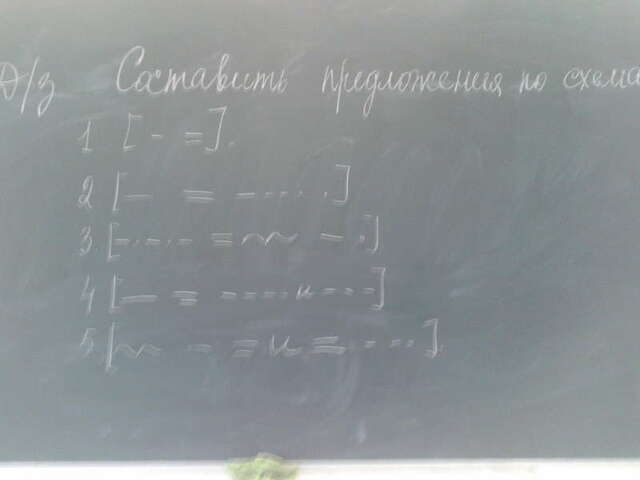 Д/з Составить предложения по схема
1 [- =].
2 [— = -·-··.]
3. [-·-·- = ~~ -.]
4 [— = ---- и -·--]
5 [~~ - = и = -·--].